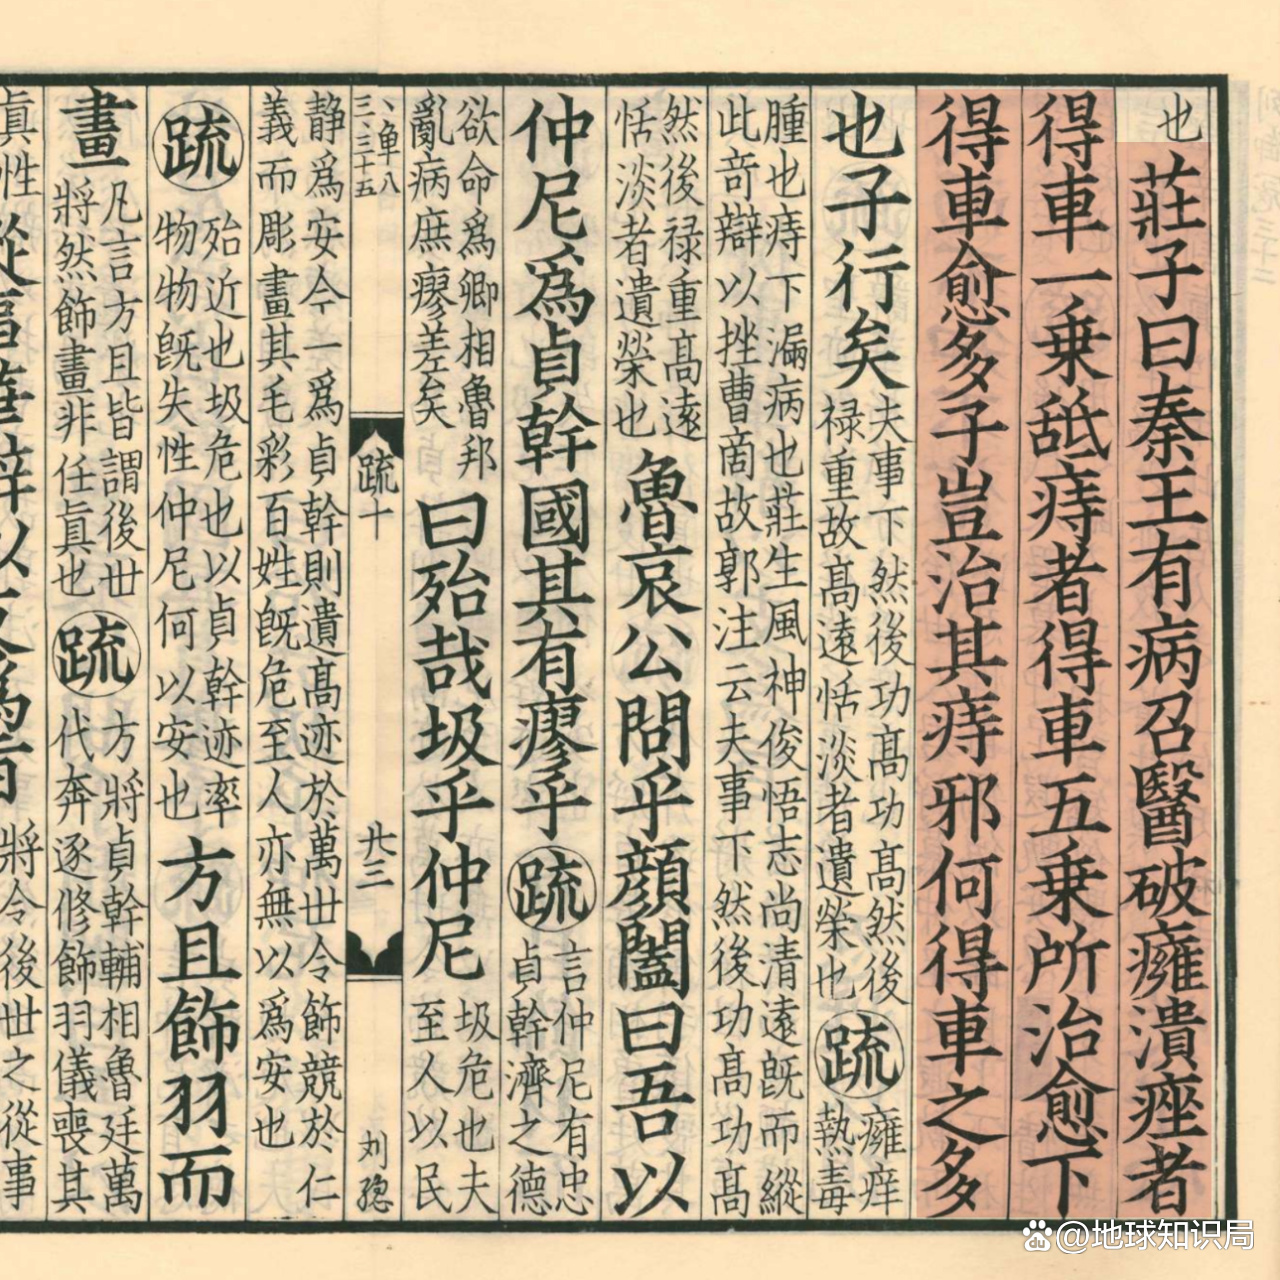 也莊子曰秦王有病召醫破癰潰痤者
得車一乗舐痔者得車五乗所治愈下
得車愈多子豈治其痔邪何得車之多
也子行矣
夫事下然後功高功高然後
禄重故高遠恬淡者遺榮也
疏
癰痒
熱毒
腫也痔下漏病也莊生風神俊悟志尚清遠旣而縱
此奇辯以挫曹商故郭注云夫事下然後功高功高
然後禄重高遠
恬淡者遺榮也
魯哀公問乎顏闔曰吾以
仲尼爲貞幹國其有瘳乎
疏
言仲尼有忠
貞幹濟之德
欲命爲卿相魯邦
亂病庶瘳差矣
曰殆哉圾乎仲尼
圾危也夫
至人以民
、单八
三、三十五
疏十
廿三
刘聰
静爲安今一爲貞幹則遺高迹於萬世令飾競於仁
義而彫畫其毛彩百姓旣危至人亦無以爲安也
疏
殆近也圾危也以貞幹迹率
物物旣失性仲尼何以安也
方且飾羽而
畫
凡言方且皆謂後世
將然飾畫非任真也
疏
方將貞幹輔相魯廷萬
代奔逐修飾羽儀喪其
真性
華辭以支爲旨
將令後世之從事
@地球知识局